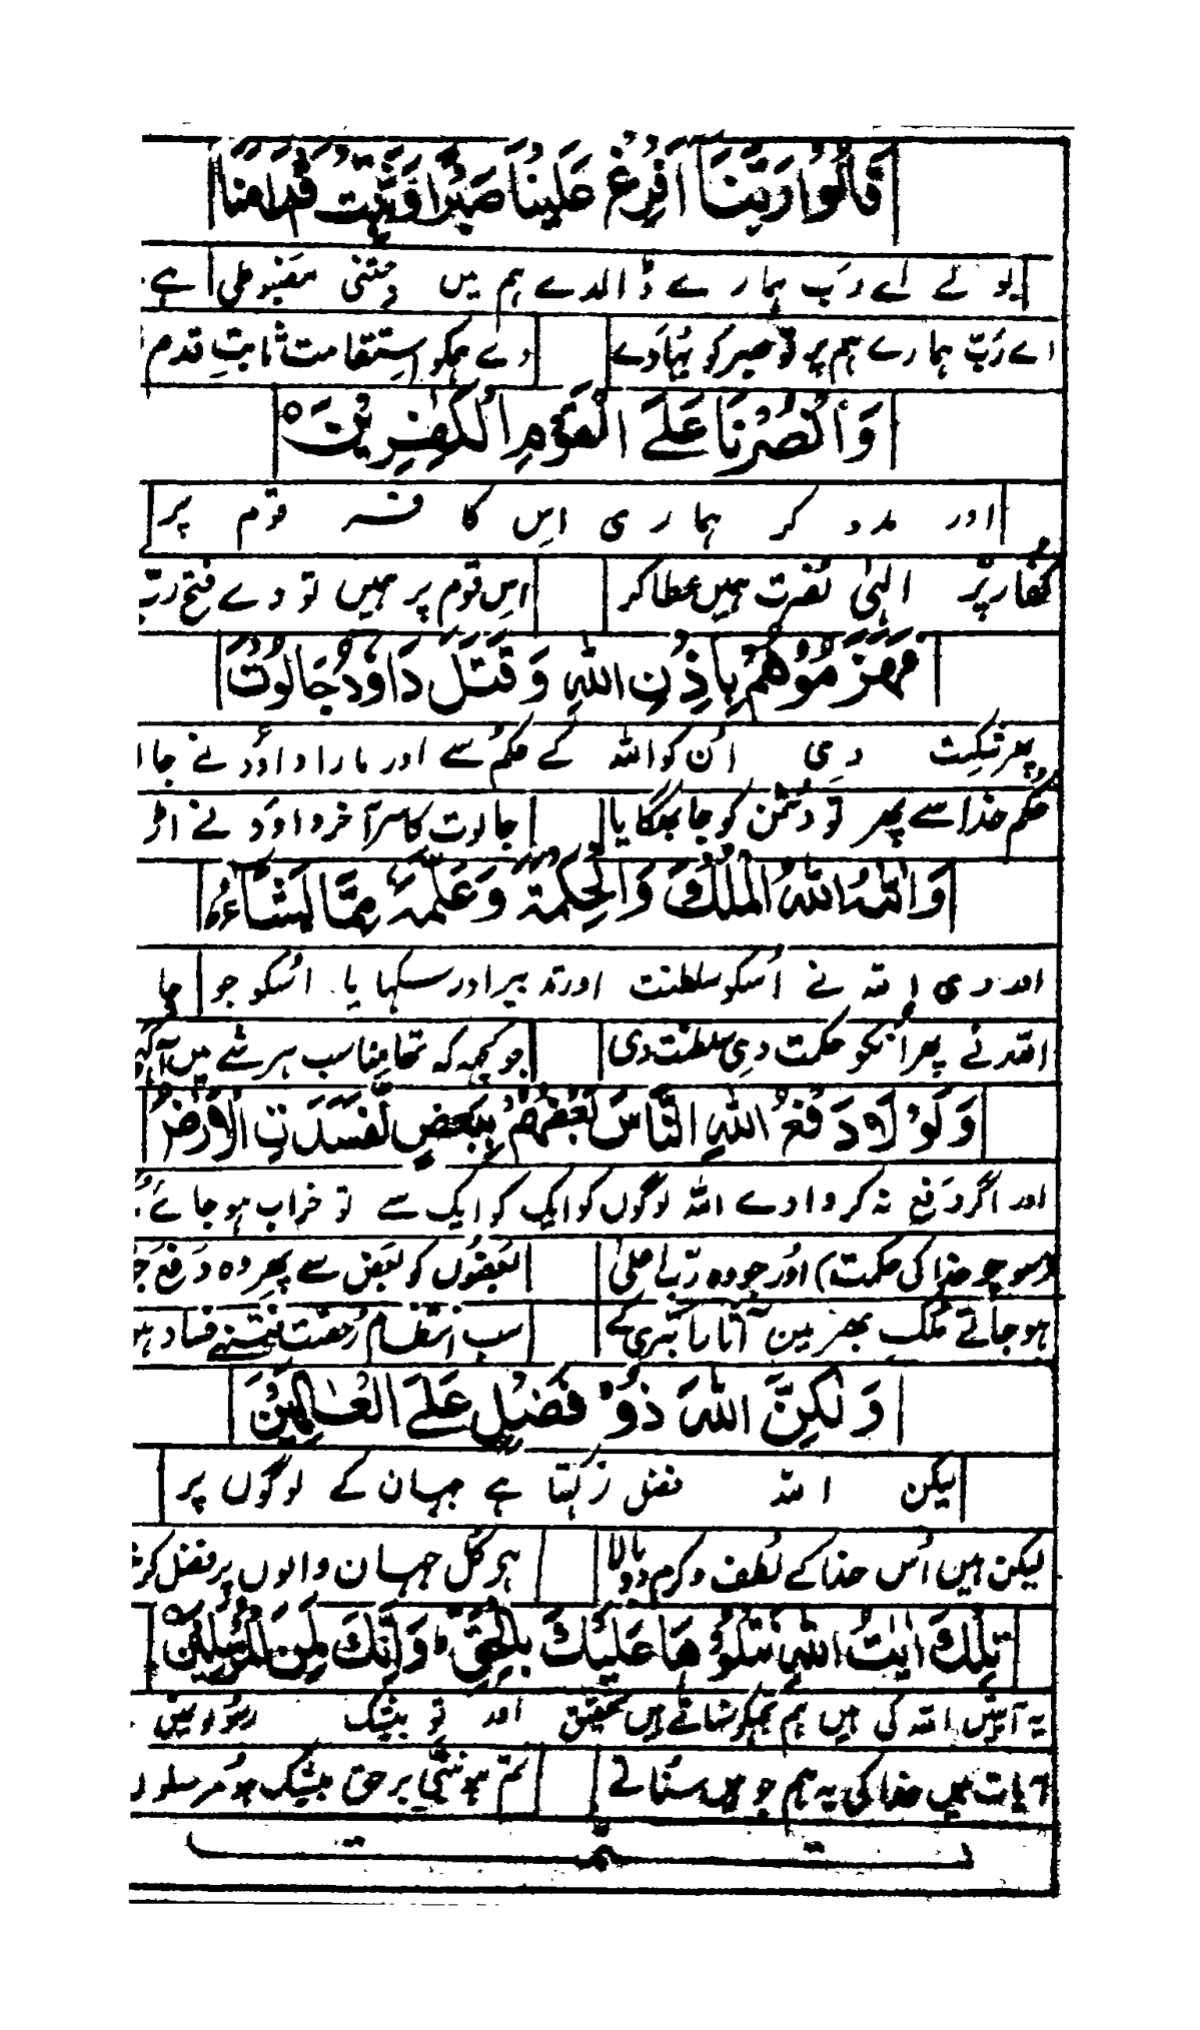 قَالُوْا رَبَّنَا اَفْرِغْ عَلَيْنَا صَبْرًا وَّثَبِّتْ اَقْدَامَنَا
بولے اے رَب ہمارے ڈالدے ہم میں جتنی مضبوطی ہے
اے رَبّ ہمارے ہم پر تو صبر کو بہادے دے ہمکو استقامت ثابت قدم
وَانْصُرْنَا عَلَے الْقَوْمِ الْكٰفِرِيْنَ
اور مدد کر ہماری اس کافر قوم پر
کفار پر الہٰی نصرت ہمیں عطا کر اس قوم پر ہمیں تو دے فتح ربّ
فَهَزَمُوْهُمْ بِاِذْنِ اللّٰهِ وَقَتَلَ دَاوٗدُ جَالُوْتَ
پھر شکست دی اُن کو اللہ کے حکم سے اور مارا داوٗد نے جا
حکم خدا سے پھر تو دشمن کو جا بھگایا جالوت کا سر آخر داوٗد نے اڑ
وَاٰتٰىهُ اللّٰهُ الْمُلْكَ وَالْحِكْمَةَ وَعَلَّمَهٗ مِمَّا يَشَآءُ
اور دی اللہ نے اُسکو سلطنت اور تدبیر اور سکہایا اُسکو جو چا
اللہ نے پھر اُنکو حکمت دی سلطنت دی جو کچہہ کہ تھا مناسب ہر شے میں آگہی
وَلَوْلَا دَفْعُ اللّٰهِ النَّاسَ بَعْضَهُمْ بِبَعْضٍ لَّفَسَدَتِ الْاَرْضُ
اور اگر دَفع نہ کروادے اللہ لوگوں کو ایک کو ایک سے تو خراب ہو جائے
سوچو خدا کی حکمت) اور جو وہ ربّ اعلیٰ بعضوں کو بعض سے پھر وہ دَفع
ہو جاتے مُلک بھر مین آثار ابتری کے سب انتظام رخصت فتنے فساد
وَلٰكِنَّ اللّٰهَ ذُوْ فَضْلٍ عَلَے الْعٰلَمِيْنَ
لیکن اللہ فضل رکہتا ہے جہان کے لوگوں پر
لیکن ہین اُس خدا کے لُطف و کرم دوبالا ہر کُل جہان والوں پر فضل کر
تِلْكَ اٰيٰتُ اللّٰهِ نَتْلُوْهَا عَلَيْكَ بِالْحَقِّ وَاِنَّكَ لَمِنَ الْمُرْسَلِيْنَ
یہ آیتیں اللہ کی ہیں ہم تجہکو سناتے ہیں تحقیق اور تو بیشک رسولونمیں
آیات ہیں خدا کی یہ ہم جو ہیں سناتے تم ہو نبی برحق بیشک ہو مرسلوں
تمت